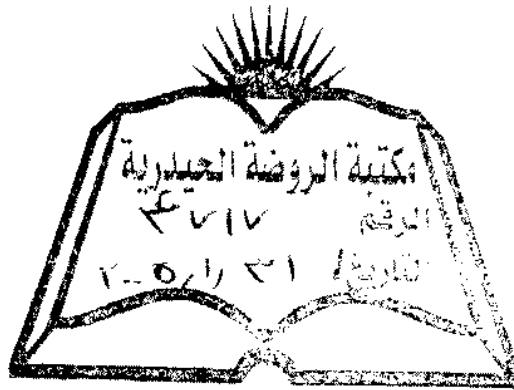 مكتبة الروضة الحيدرية
الرقم ٤٧١٧
التاريخ ٣١ / ١ / ٢٠٠٥